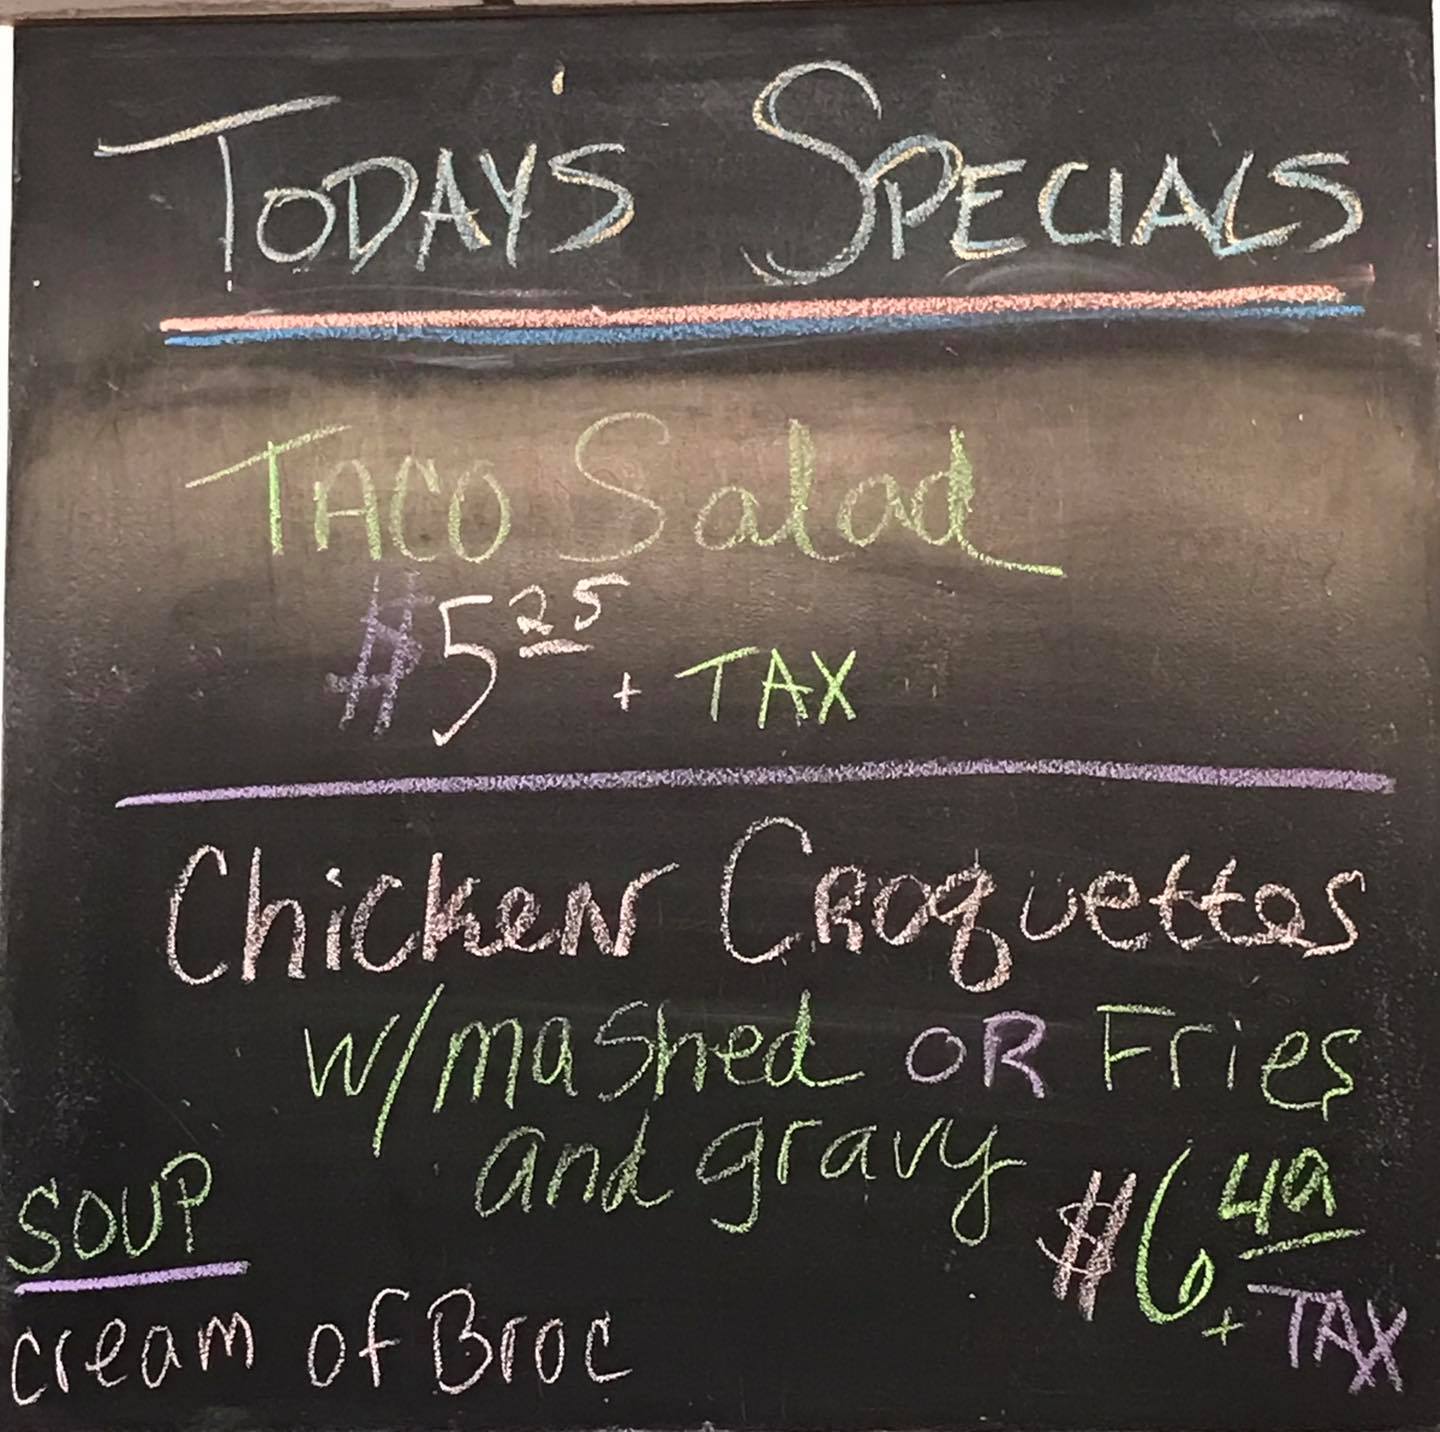 TODAY'S SPECIALS
TACO Salad
$5 25 + TAX
Chicken Croquettes
w/mashed OR Fries
and gravy
$6 49
+ TAX
SOUP
cream of Broc